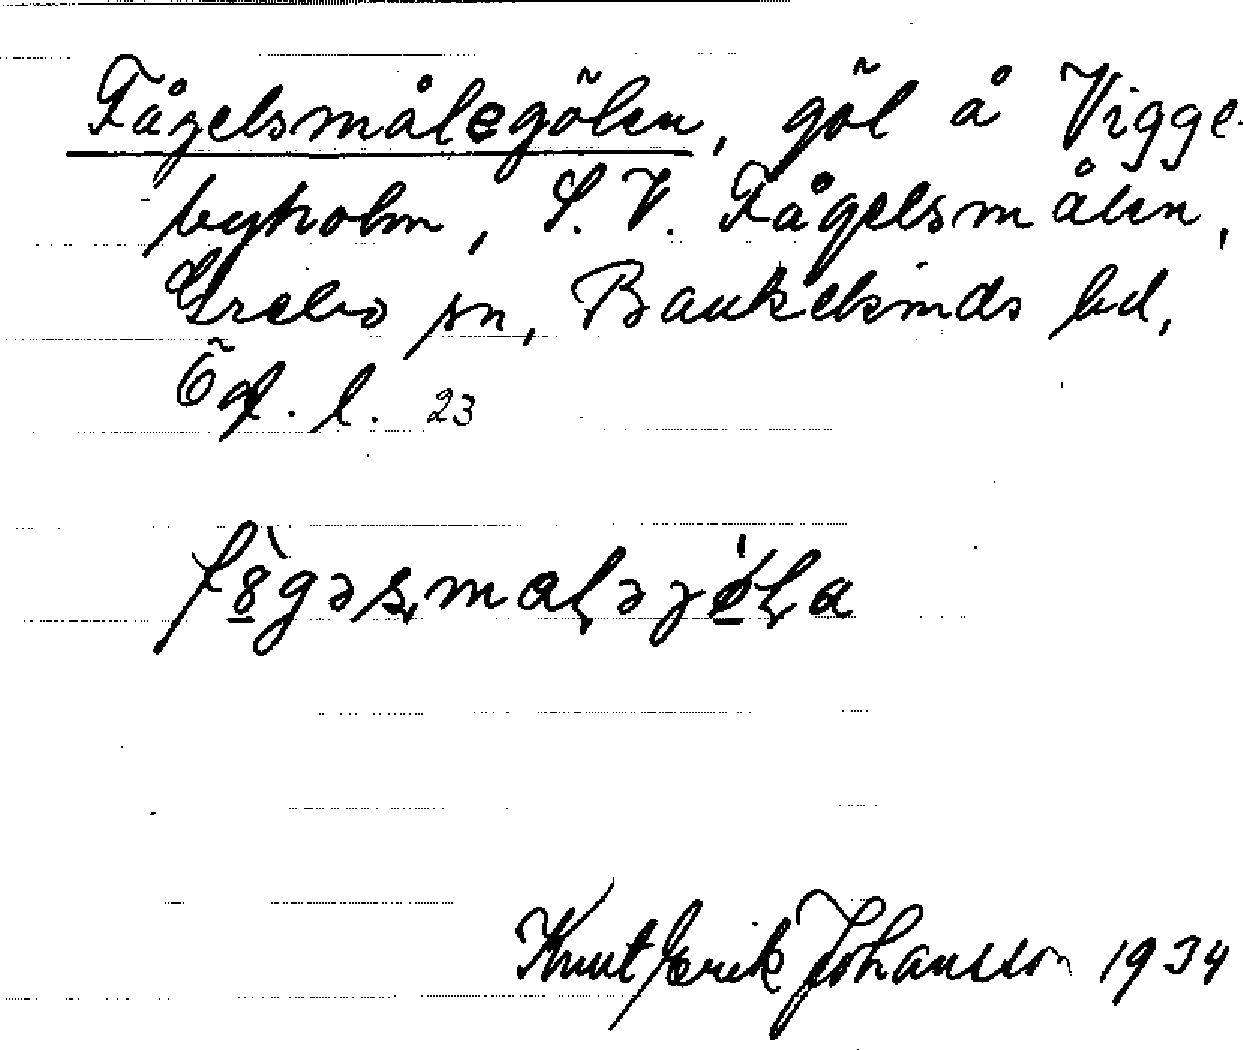 Fågelsmålegölen, göl å Vigge-
byholm, S. V. Fågelsmålen,
Grebo sn, Bankekinds hd,
Ögl. l. 23
Knut Erik Johansson 1934